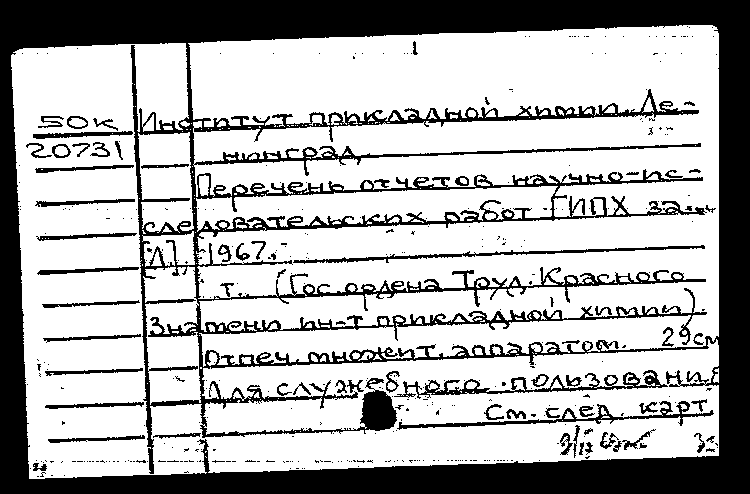 50К Институт прикладной химии. Ле-
20731 нинград
Перечень отчетов научно-ис-
следовательских работ ГИПХ за...
[Л], 1967.
т. (Гос. ордена Труд. Красного
Знамени ин-т прикладной химии).
Отпеч. множит. аппаратом. 29см
Для служебного пользования
См. след. карт.